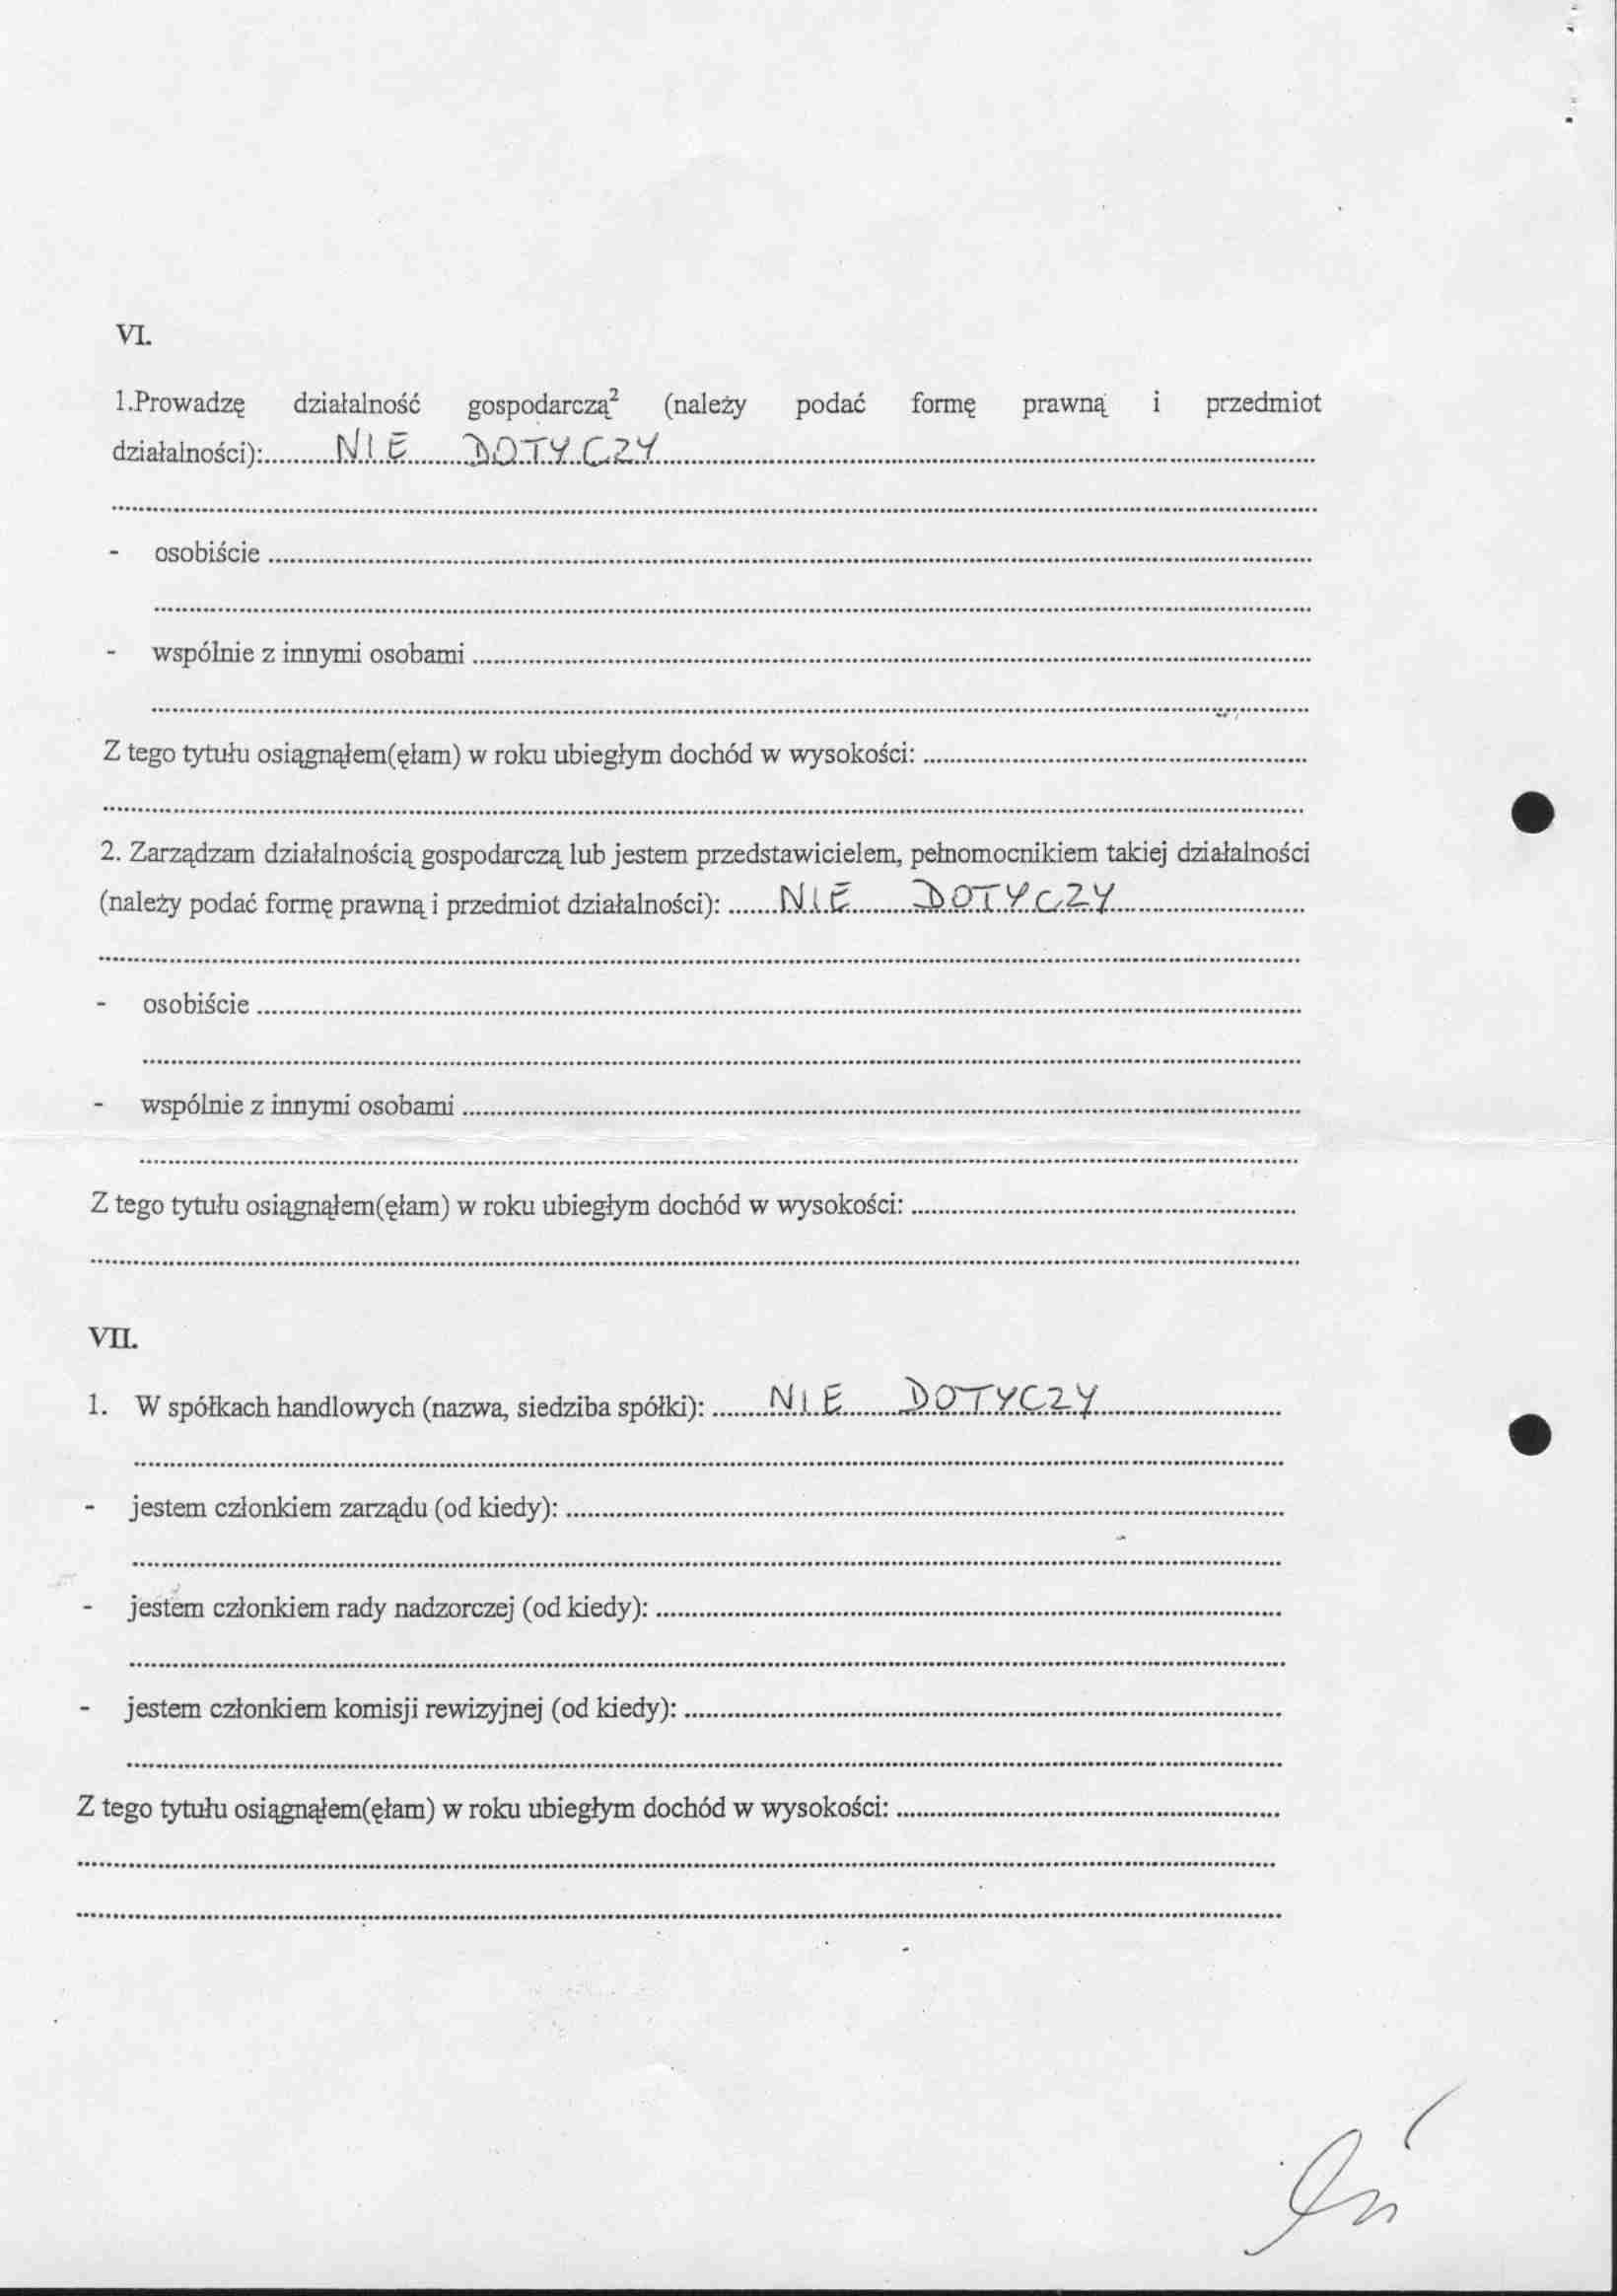 VI.
1.Prowadzę działalność gospodarczą² (należy podać formę prawną i przedmiot
działalności):..........NIE DOTYCZY..........
- osobiście ..........
- wspólnie z innymi osobami ..........
Z tego tytułu osiągnąłem(ęłam) w roku ubiegłym dochód w wysokości: ..........
2. Zarządzam działalnością gospodarczą lub jestem przedstawicielem, pełnomocnikiem takiej działalności
(należy podać formę prawną i przedmiot działalności): .......NIE DOTYCZY..........
- osobiście ..........
- wspólnie z innymi osobami ..........
Z tego tytułu osiągnąłem(ęłam) w roku ubiegłym dochód w wysokości: ..........
VII.
1. W spółkach handlowych (nazwa, siedziba spółki): ........NIE DOTYCZY..........
- jestem członkiem zarządu (od kiedy): ..........
- jestem członkiem rady nadzorczej (od kiedy): ..........
- jestem członkiem komisji rewizyjnej (od kiedy): ..........
Z tego tytułu osiągnąłem(ęłam) w roku ubiegłym dochód w wysokości: ..........